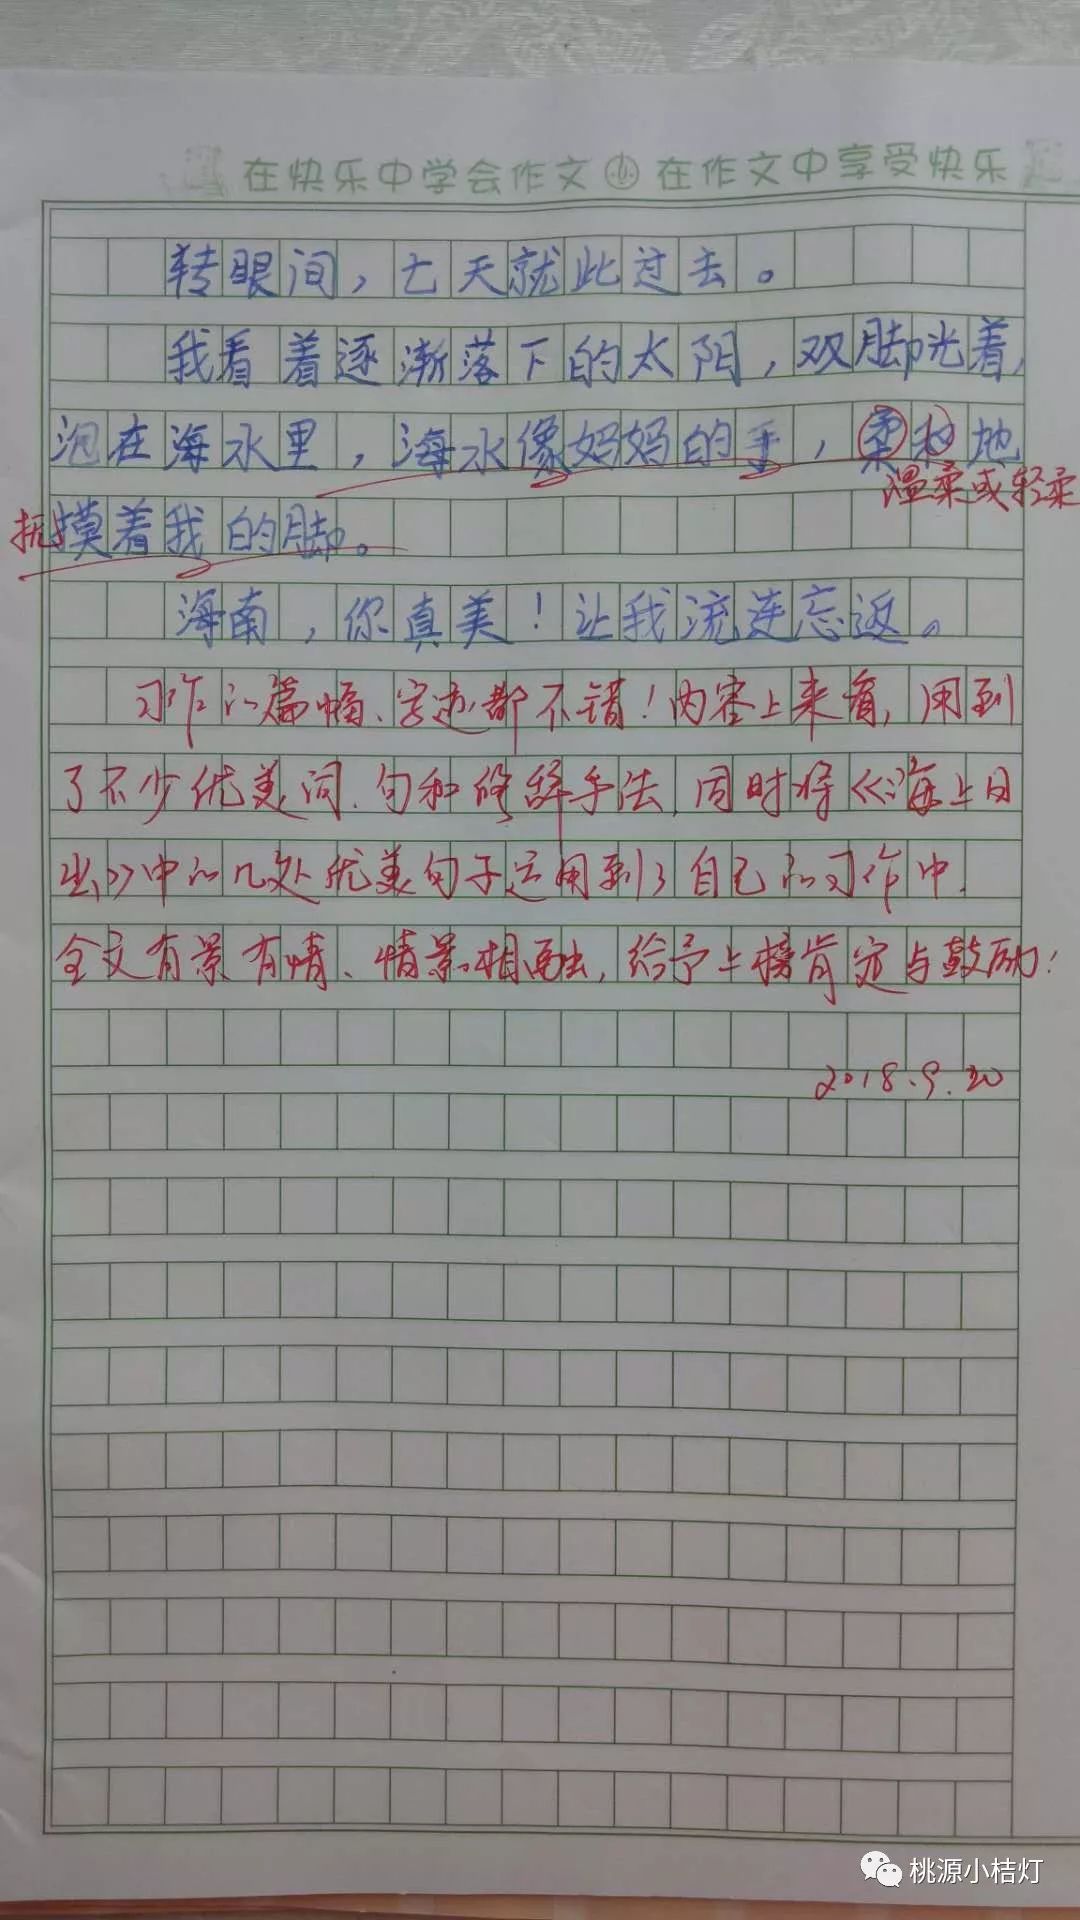 在快乐中学会作文 在作文中享受快乐
转眼间，七天就此过去。
我看着逐渐落下的太阳，双脚光着，
泡在海水里，海水像妈妈的手，柔和地
温柔或轻柔
抚摸着我的脚。
海南，你真美！让我流连忘返。
习作的篇幅、字迹都不错！内容上来看，用到
了不少优美词、句和修辞手法，同时将《海上日
出》中的几处优美句子运用到了自己的习作中，
全文有景有情、情景相融，给予上榜肯定与鼓励！
2018.9.20
桃源小桔灯